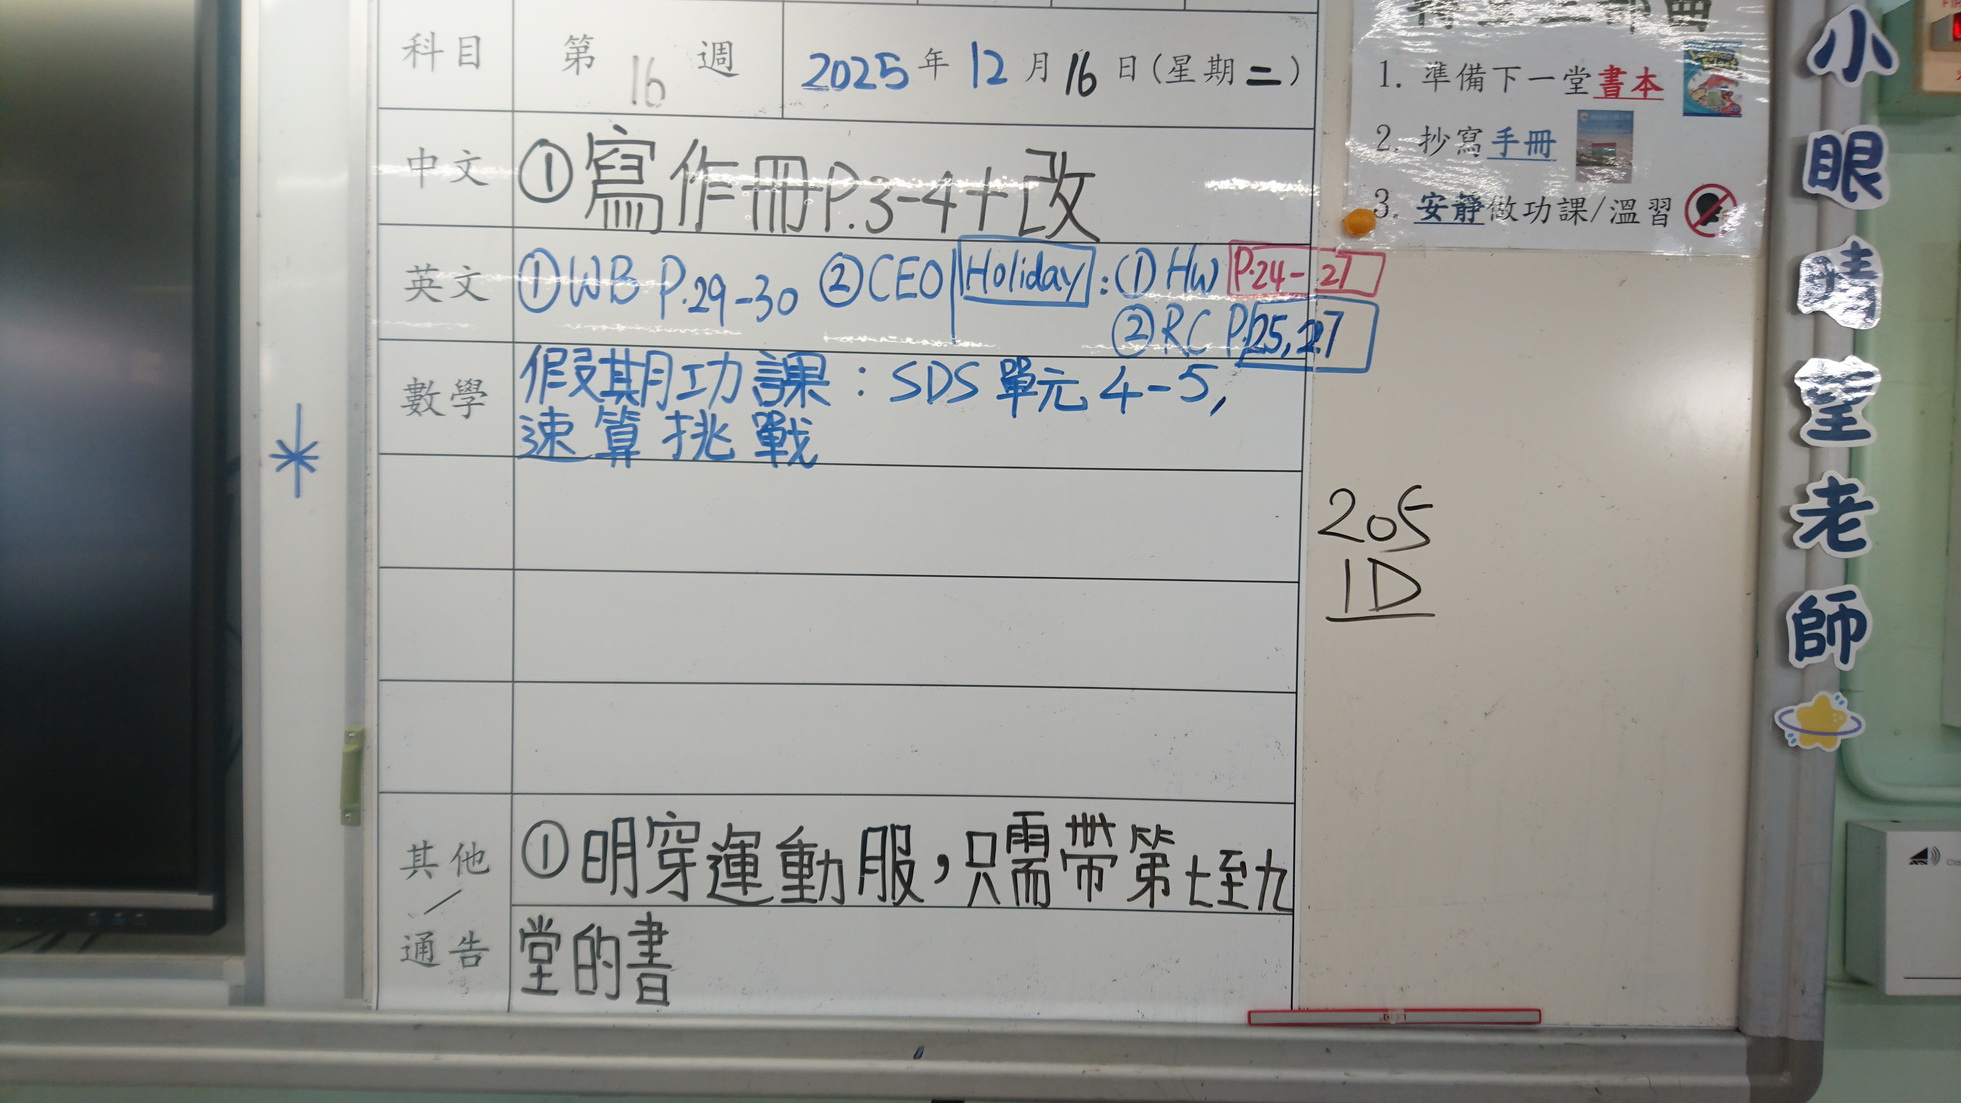 科目 第 16 週 2025 年 12 月 16 日 (星期二)
中文 ①寫作冊P.3-4+改
英文 ①WB P.29-30 ②CEO Holiday : ① HW P.24-27
②RC P.25,27
數學 假期功課：SDS 單元 4-5,
速算挑戰
其他/通告 ①明穿運動服，只需帶第七至九
堂的書
1. 準備下一堂書本
2. 抄寫手冊
3. 安靜做功課/溫習
205
1D
小眼睛望老師